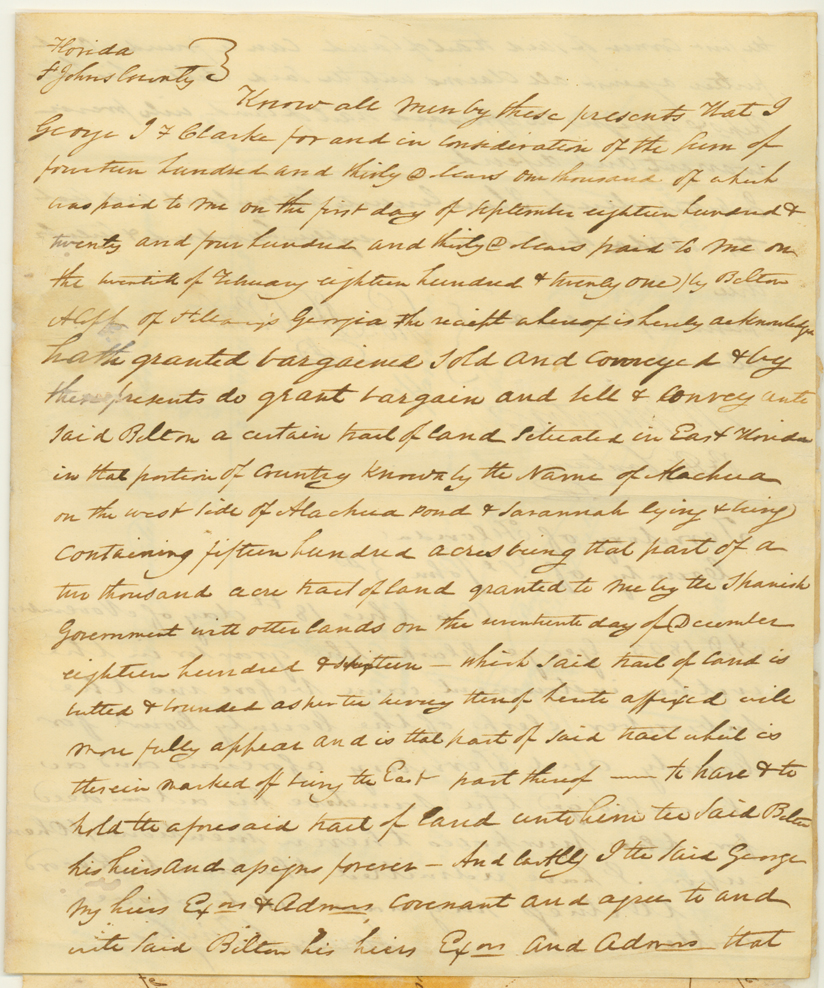 Florida
St Johns County }
Know all men by these presents that I
George J F Clarke for and in consideration of the sum of
fourteen hundred and thirty Dollars one thousand of which
was paid to me on the first day of September eighteen hundred &
twenty and four hundred and thirty Dollars paid to me on
the twentieth of February eighteen hundred & twenty one) by Belton
of Georgia the receipt whereof is hereby acknowledge
hath granted bargained sold and conveyed & by
these presents do grant bargain and sell & convey unto
said Belton a certain tract of land situated in East Florida
in that portion of Country known by the Name of Alachua
on the west side of Alachua pond & Savannah lying & being
containing fifteen hundred acres being that part of a
two thousand acre tract of land granted to me by the Spanish
Government with other lands on the seventeenth day of December
eighteen hundred & sixteen — which said tract of land is
butted & bounded as per the survey thereof hereto affixed will
more fully appear and is that part of said tract which is
therein marked of being the East part thereof —— to have & to
hold the aforesaid tract of land unto him the said Belton
his heirs and assigns forever — And lastly I the said George
my heirs Exors & Admors covenant and agree to and
with said Belton his heirs Exors and Admors that